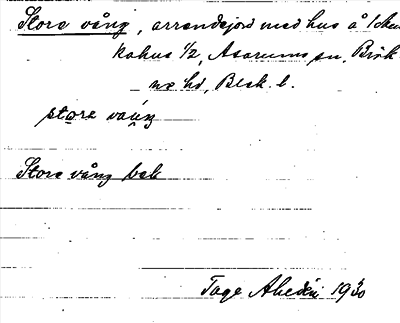 Stora vång, arrendejord med hus å
kahus 1/2, Asarums sn, Bräk
ne hd, Blek. l.
stora vaŋ
Stora vång bok
Tage Ahldén 1930